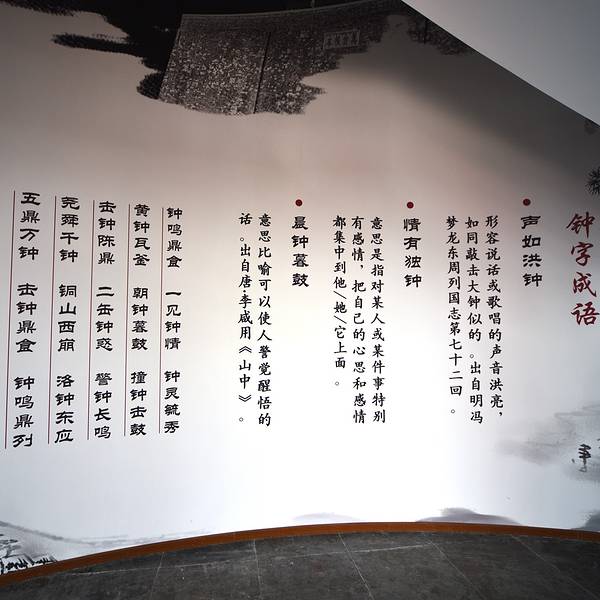 钟字成语
声如洪钟
形容说话或歌唱的声音洪亮，
如同敲击大钟似的。出自明冯
梦龙东周列国志第七十二回。
情有独钟
意思是指对某人或某件事特别
有感情，把自己的心思和感情
都集中到他/她/它上面。
晨钟暮鼓
意思比喻可以使人警觉醒悟的
话。出自唐·李咸用《山中》。
钟鸣鼎食 一见钟情 钟灵毓秀
黄钟瓦釜 朝钟暮鼓 撞钟击鼓
击钟陈鼎 二缶钟惑 警钟长鸣
尧舜千钟 铜山西崩 洛钟东应
五鼎万钟 击钟鼎食 钟鸣鼎列